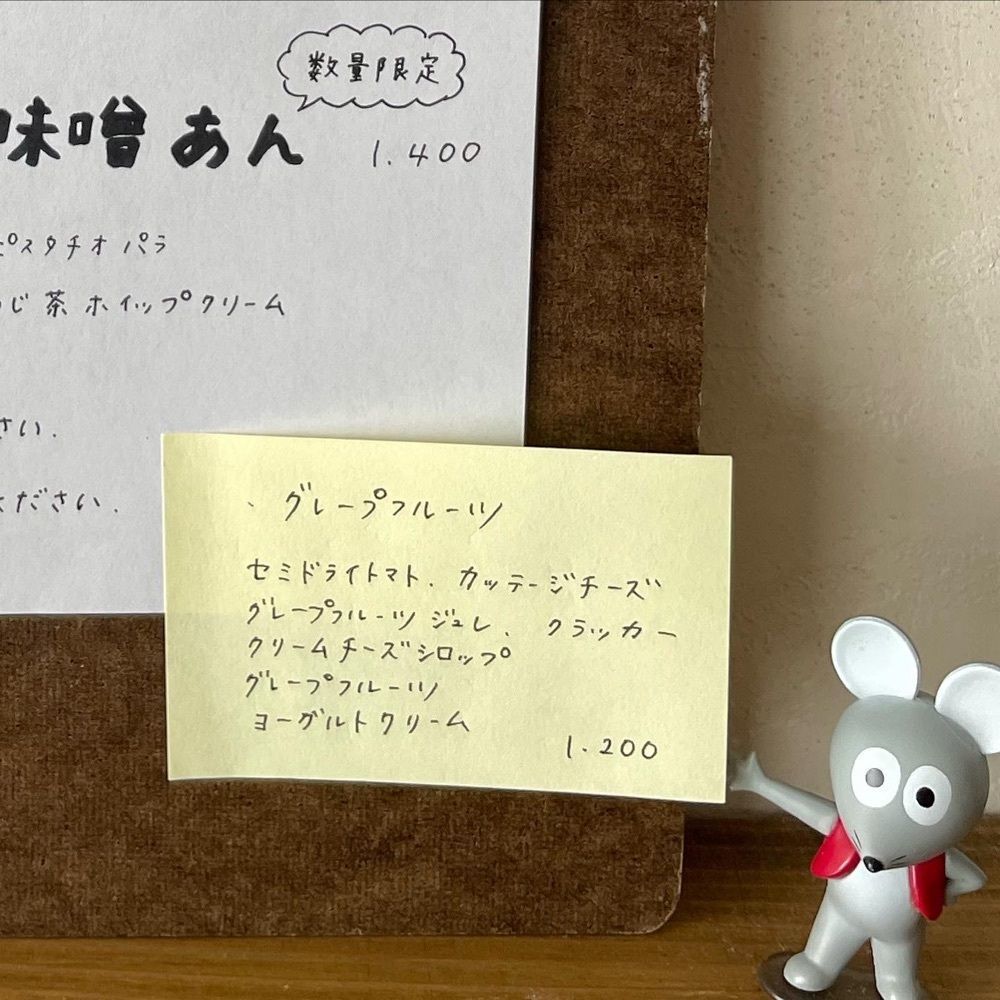 数量限定
味噌あん 1.400
ピスタチオ パラ
じ茶 ホイップクリーム
さい.
ください.
・グレープフルーツ
セミドライトマト、カッテージチーズ
グレープフルーツ ジュレ、クラッカー
クリームチーズシロップ
グレープフルーツ
ヨーグルトクリーム
1.200